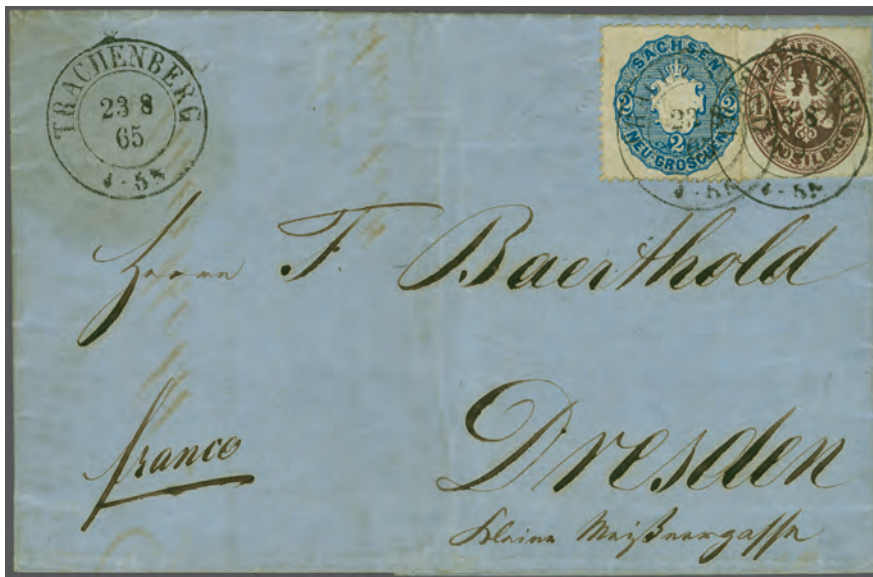 TRACHENBERG
23 8
65
4-5N
SACHSEN
2 2
2
NEU-GROSCHEN
23
Herrn F. Baerthold
franco
Dresden
Kleine Meißnergasse